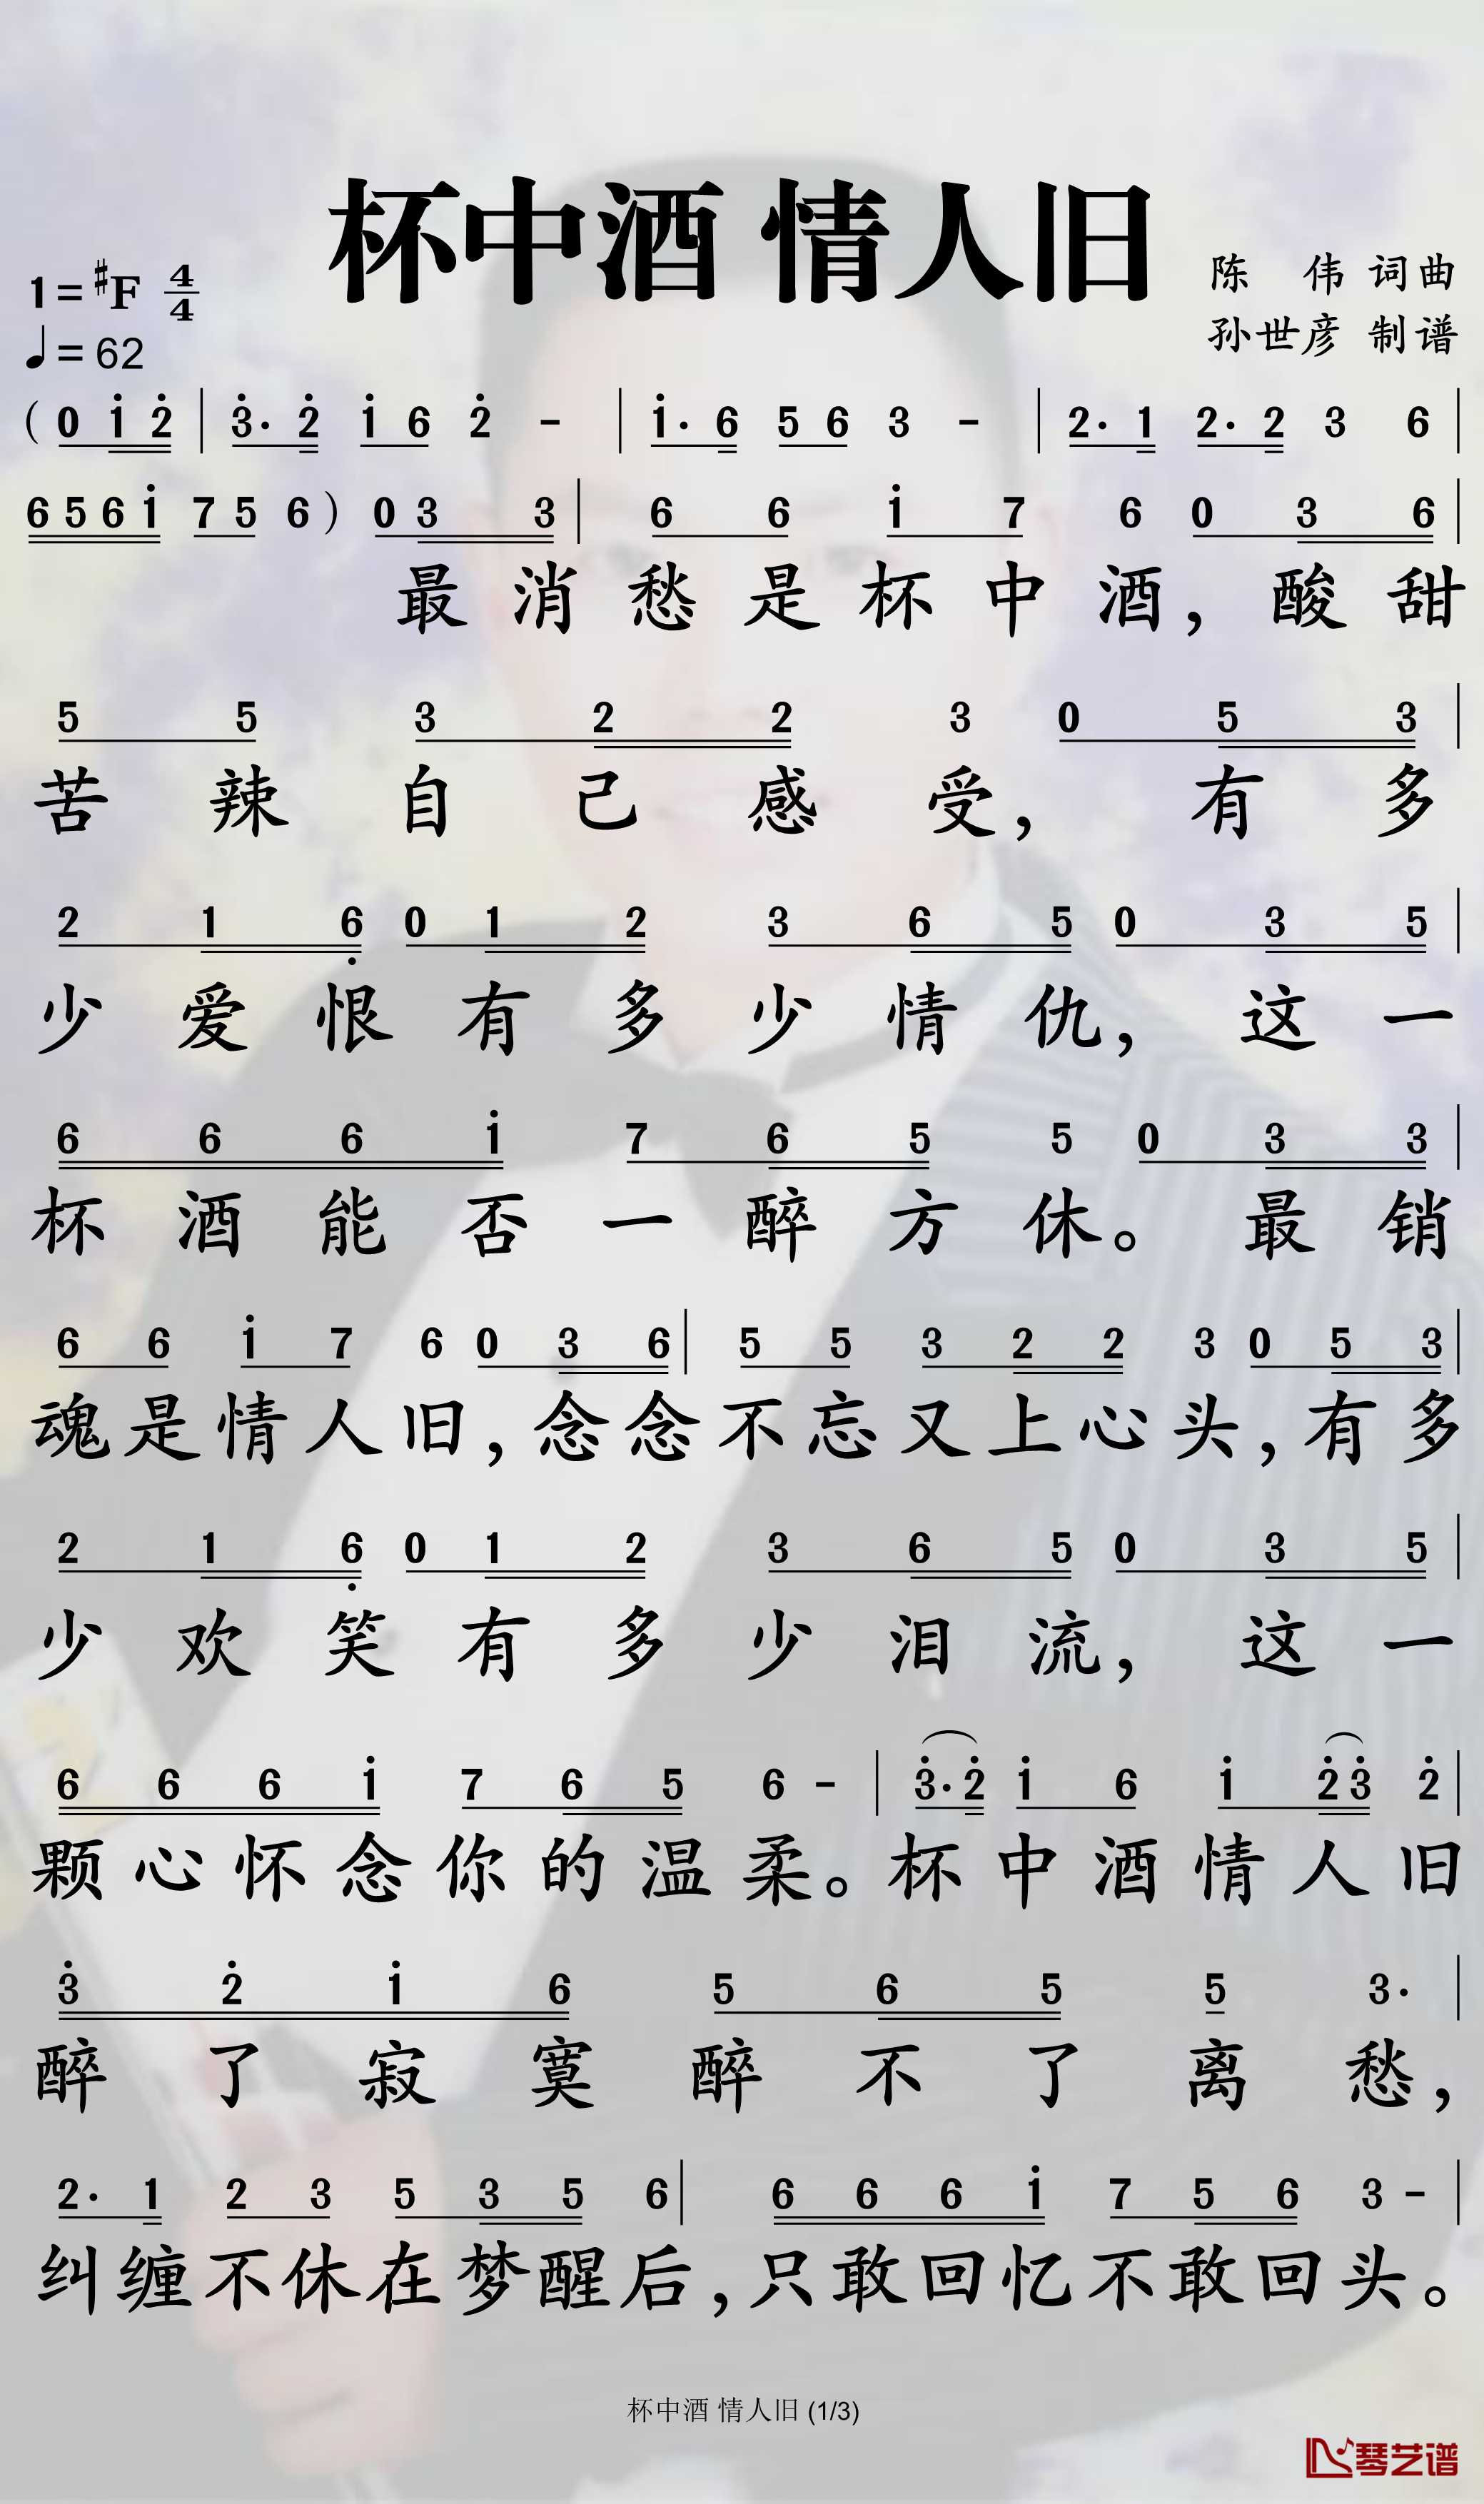 杯中酒 情人旧
1=♯F 4/4
♩=62
陈 伟 词曲
孙世彦 制谱
( 0 i̇ 2̇ | 3̇· 2̇ i̇ 6 2̇ - | i̇· 6 5 6 3 - | 2· 1 2· 2 3 6 |
6 5 6 i̇ 7 5 6 ) 0 3 3 | 6 6 i̇ 7 6 0 3 6 |
最 消 愁 是 杯 中 酒, 酸 甜
5 5 3 2 2 3 0 5 3 |
苦 辣 自 己 感 受, 有 多
2 1 6̣ 0 1 2 3 6 5 0 3 5 |
少 爱 恨 有 多 少 情 仇, 这 一
6 6 6 i̇ 7 6 5 5 0 3 3 |
杯 酒 能 否 一 醉 方 休。 最 销
6 6 i̇ 7 6 0 3 6 | 5 5 3 2 2 3 0 5 3 |
魂 是 情 人 旧, 念 念 不 忘 又 上 心 头, 有 多
2 1 6̣ 0 1 2 3 6 5 0 3 5 |
少 欢 笑 有 多 少 泪 流, 这 一
6 6 6 i̇ 7 6 5 6 - | 3̇· 2̇ i̇ 6 i̇ 2̇ 3̇ 2̇ |
颗 心 怀 念 你 的 温 柔。 杯 中 酒 情 人 旧
3̇ 2̇ i̇ 6 5 6 5 5 3· |
醉 了 寂 寞 醉 不 了 离 愁,
2· 1 2 3 5 3 5 6 | 6 6 6 i̇ 7 5 6 3 - |
纠 缠 不 休 在 梦 醒 后, 只 敢 回 忆 不 敢 回 头。
杯中酒 情人旧 (1/3)
琴艺谱